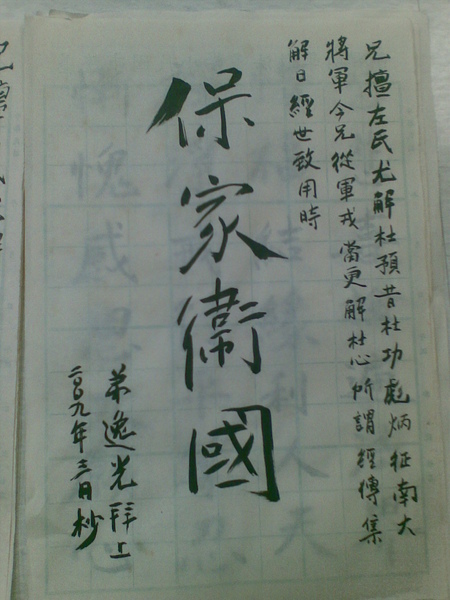 兄擅左氏尤解杜預昔杜功彪炳征南大
將軍今兄從軍戎當更解杜心所謂經傳集
解日經世致用時
保家衛國
弟逸光拜上
二〇〇九年三月杪